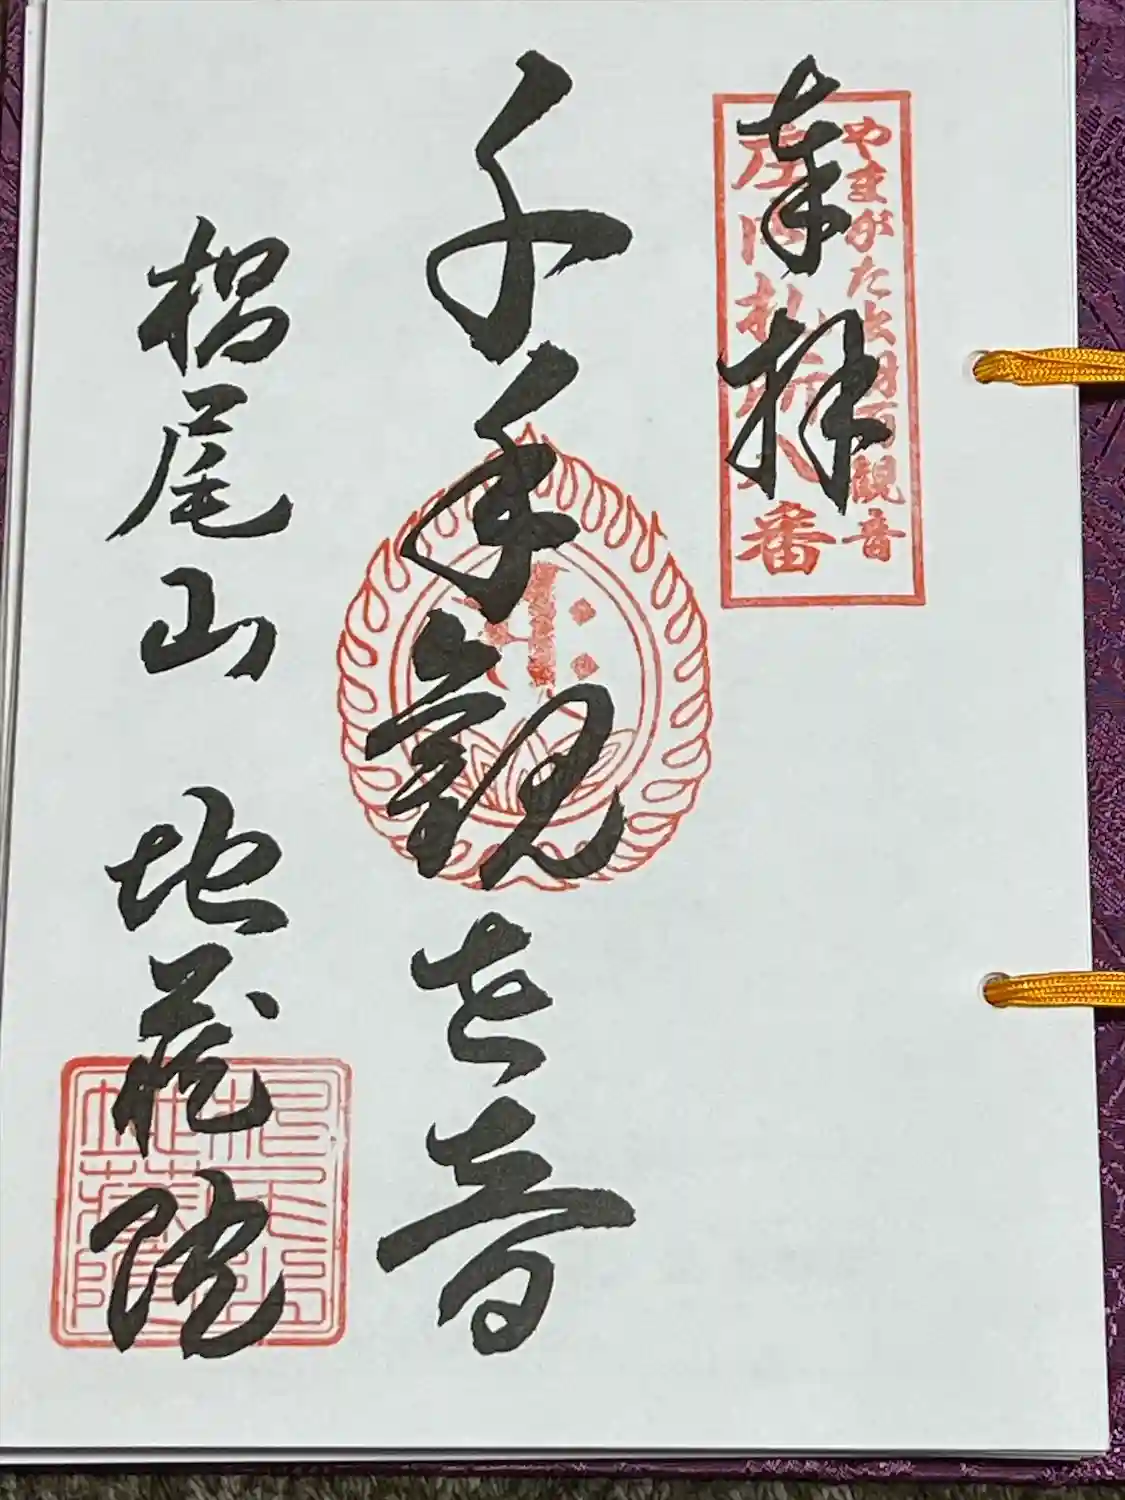 奉拝
やまがた出羽百観音
庄内札所八番
千手観世音
椙尾山 地蔵院